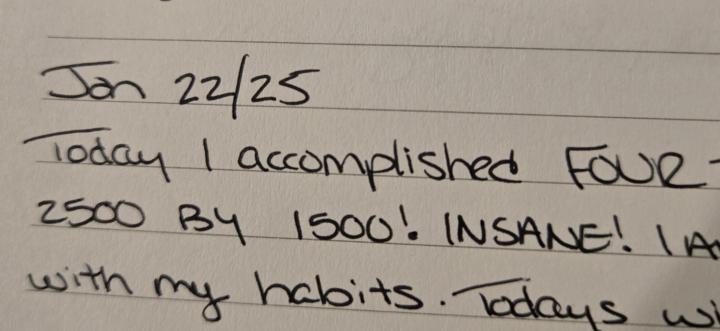 Jan 22/25
Today I accomplished FOUR-
2500 By 1500! INSANE! I
with my habits. Todays